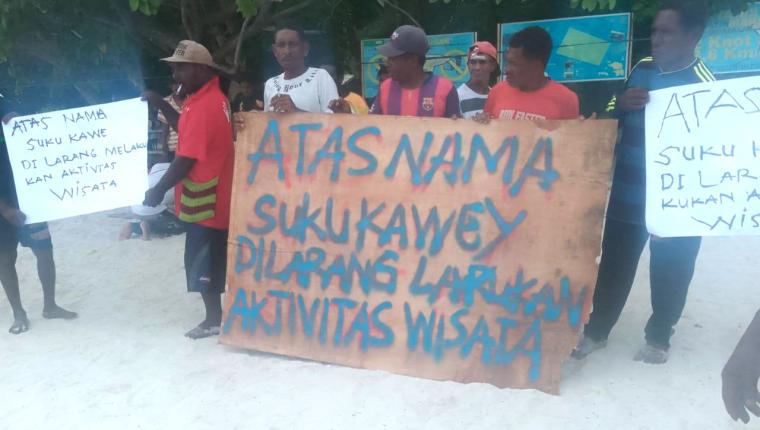 ATAS NAMA
SUKU KAWE
DI LARANG MELAKU
KAN AKTIVTAS
WISATA
ATAS NAMA
SUKU KAWEY
DILARANG LAKUKAN
AKTIVITAS WISATA
ATAS
SUKU K
DI LAR
KUKAN A
WIS